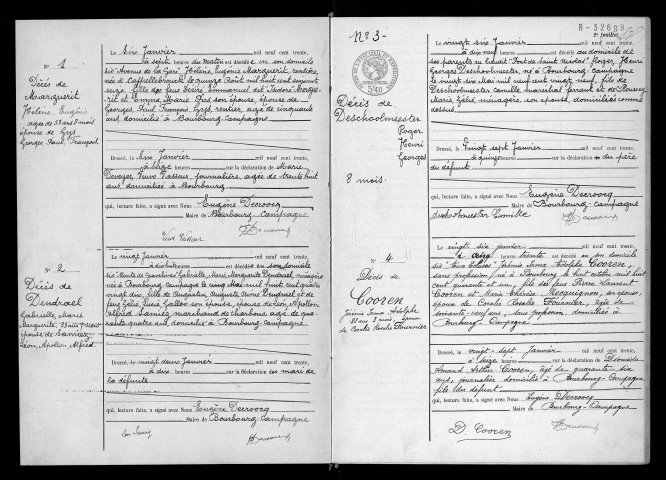 N° 1
Décès de
Marguerit
Hélène, Eugénie
agée de 53 ans 8 mois
épouse de Gys
Georges Paul François
Le six Janvier mil neuf cent trente,
à sept heures du matin est décédée en son domicile
sis "Avenue de la Gare" Hélène, Eugénie Marguerit, rentière,
née à Cappellebrouck le quinze Août mil huit cent soixante
seize, fille des feus Désiré Emmanuel dit Isidore Marguerit
et Emma, Marie son épouse, épouse de
Georges, Paul François Gys, rentier, agé de cinquante
ans, domicilié à Bourbourg-Campagne.
Dressé, le six Janvier mil neuf cent trente,
à seize heures sur la déclaration de Marie
Devoyer, Veuve Vasseur, journalière, agée de trente huit
ans, domiciliée à Bourbourg.
qui, lecture faite, a signé avec Nous Eugène Decroocq
Maire de Bourbourg-Campagne
Veuve Vasseur
N° 2
Décès de
Dendraël
Gabrielle, Marie
Marguerite, 39 ans 7 mois
épouse de Samiez
Léon, Apollon, Alfred.
Le vingt Janvier mil neuf cent trente,
à dix heures est décédée en son domicile
sis "Route de Gravelines" Gabrielle, Marie Marguerite Dendraël, ménagère
née à Bourbourg-Campagne le cinq Mai mil huit cent quatre
vingt dix, fille de Augustin, Auguste Dendraël et de
son épouse, épouse de Léon, Apollon
Alfred Samiez, marchand de charbons, agé de
quarante quatre ans, domicilié à Bourbourg-Campagne.
Dressé, le vingt deux Janvier mil neuf cent trente,
à dix heures sur la déclaration du mari de
la défunte
qui, lecture faite, a signé avec Nous Eugène Decroocq
Maire de Bourbourg-Campagne
R-32689
2e feuillet
N° 3
Décès de
Deschoolmeester
Roger
Henri
Georges
8 mois.
Le vingt six Janvier mil neuf cent trente,
à dix neuf heures est décédé au domicile de
ses parents au lieudit "Fort de Saint Nicolas" Roger, Henri
Georges Deschoolmeester, né à Bourbourg-Campagne
le vingt six Mai mil neuf cent vingt neuf, fils de
Deschoolmeester Camille, maréchal ferrant et de
Marie, ménagère, son épouse, domiciliés comme
dessus.
Dressé, le Vingt sept Janvier mil neuf cent trente,
à quinze heures sur la déclaration du père
du défunt.
qui, lecture faite, a signé avec Nous Eugène Decroocq
Maire de Bourbourg-Campagne
Deschoolmeester Camille
N° 4
Décès de
Cooren
Jérémie Irma Adolphe
89 ans 3 mois, époux
de Coralie Rosalie Fournier
Le vingt six janvier mil neuf cent trente,
à cinq heures trente est décédé en son domicile
Jérémie Irma Adolphe Cooren,
sans profession, né à Bourbourg le huit octobre mil huit
cent quarante et un, fils des feus Pierre Laurent
Cooren et Marie Thérèse son épouse,
époux de Coralie Rosalie Fournier, agée de
soixante-neuf ans, sans profession, domiciliés à
Bourbourg-Campagne.
Dressé, le vingt-sept Janvier mil neuf cent trente,
à seize heures sur la déclaration de
Arthur Cooren, agé de quarante six
ans, journalier domicilié à Bourbourg-Campagne
fils du défunt
qui, lecture faite, a signé avec Nous Eugène Decroocq
Maire de Bourbourg-Campagne
D. Cooren